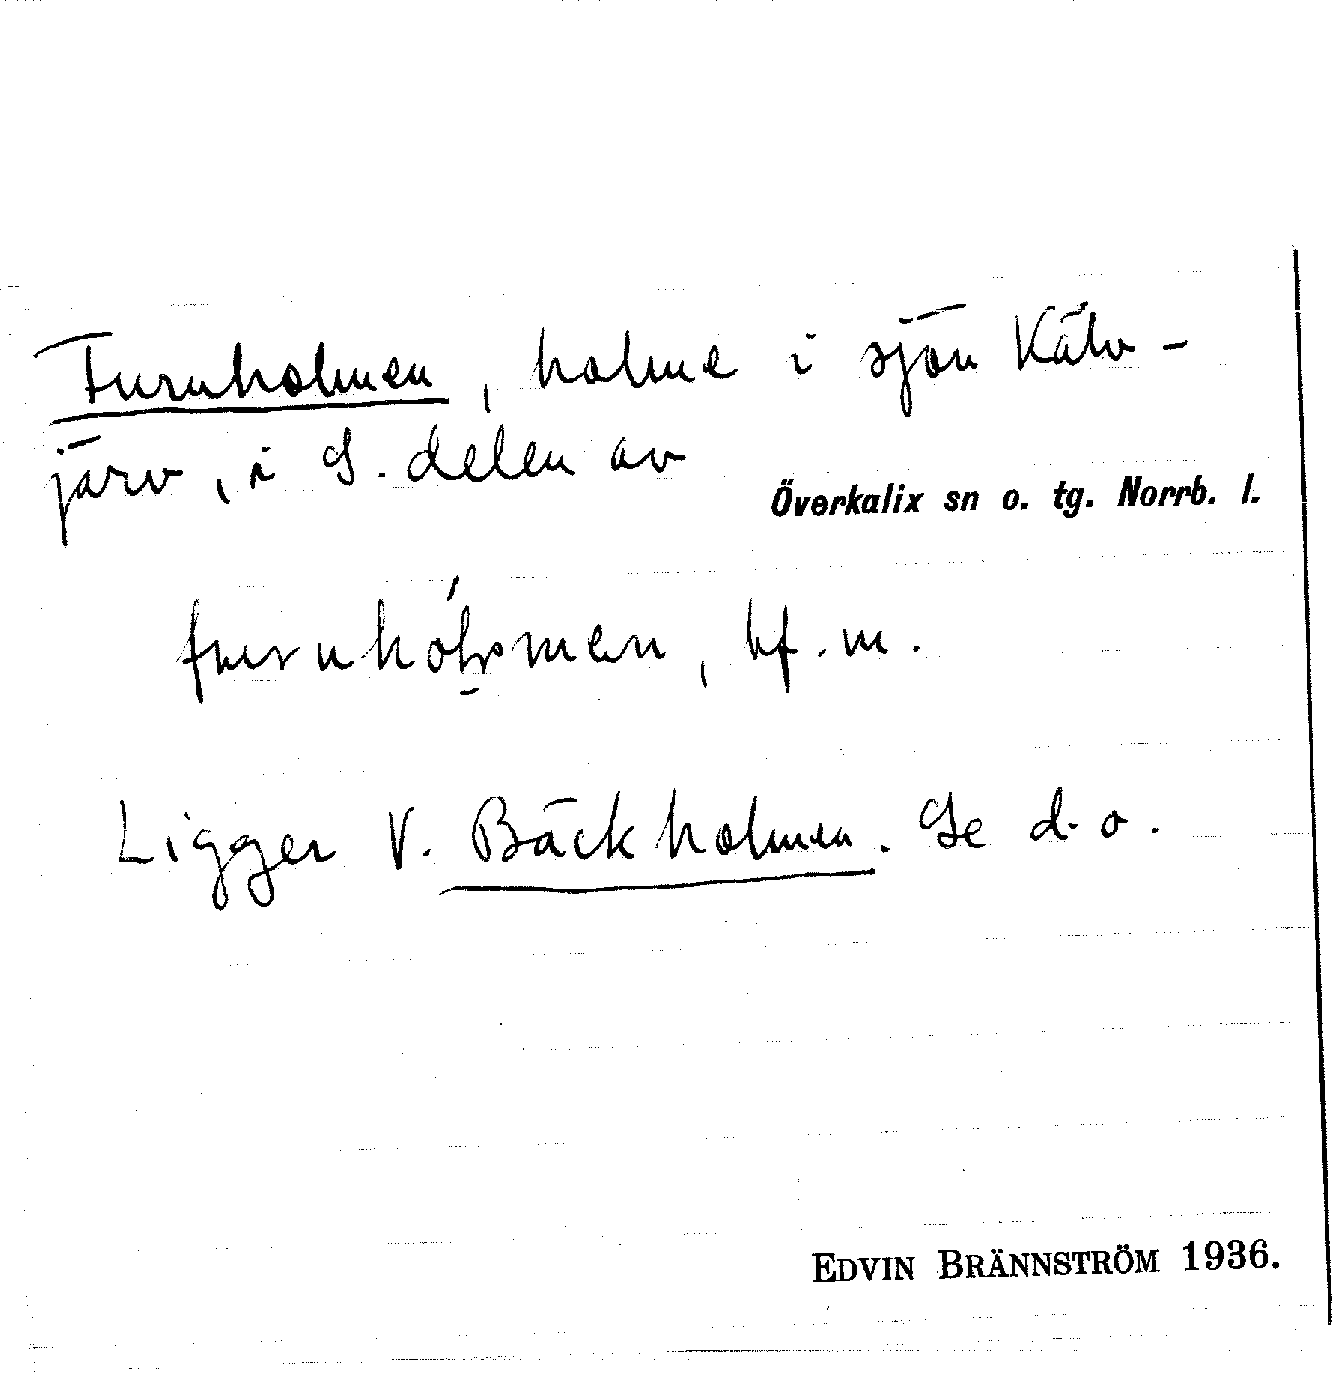 Furnholmen, holme i sjön Kälv-
järv, i S. delen av
Överkalix sn o. tg. Norrb. l.
bf. m.
Ligger V. Bäckholmen. Se d. o.
EDVIN BRÄNNSTRÖM 1936.